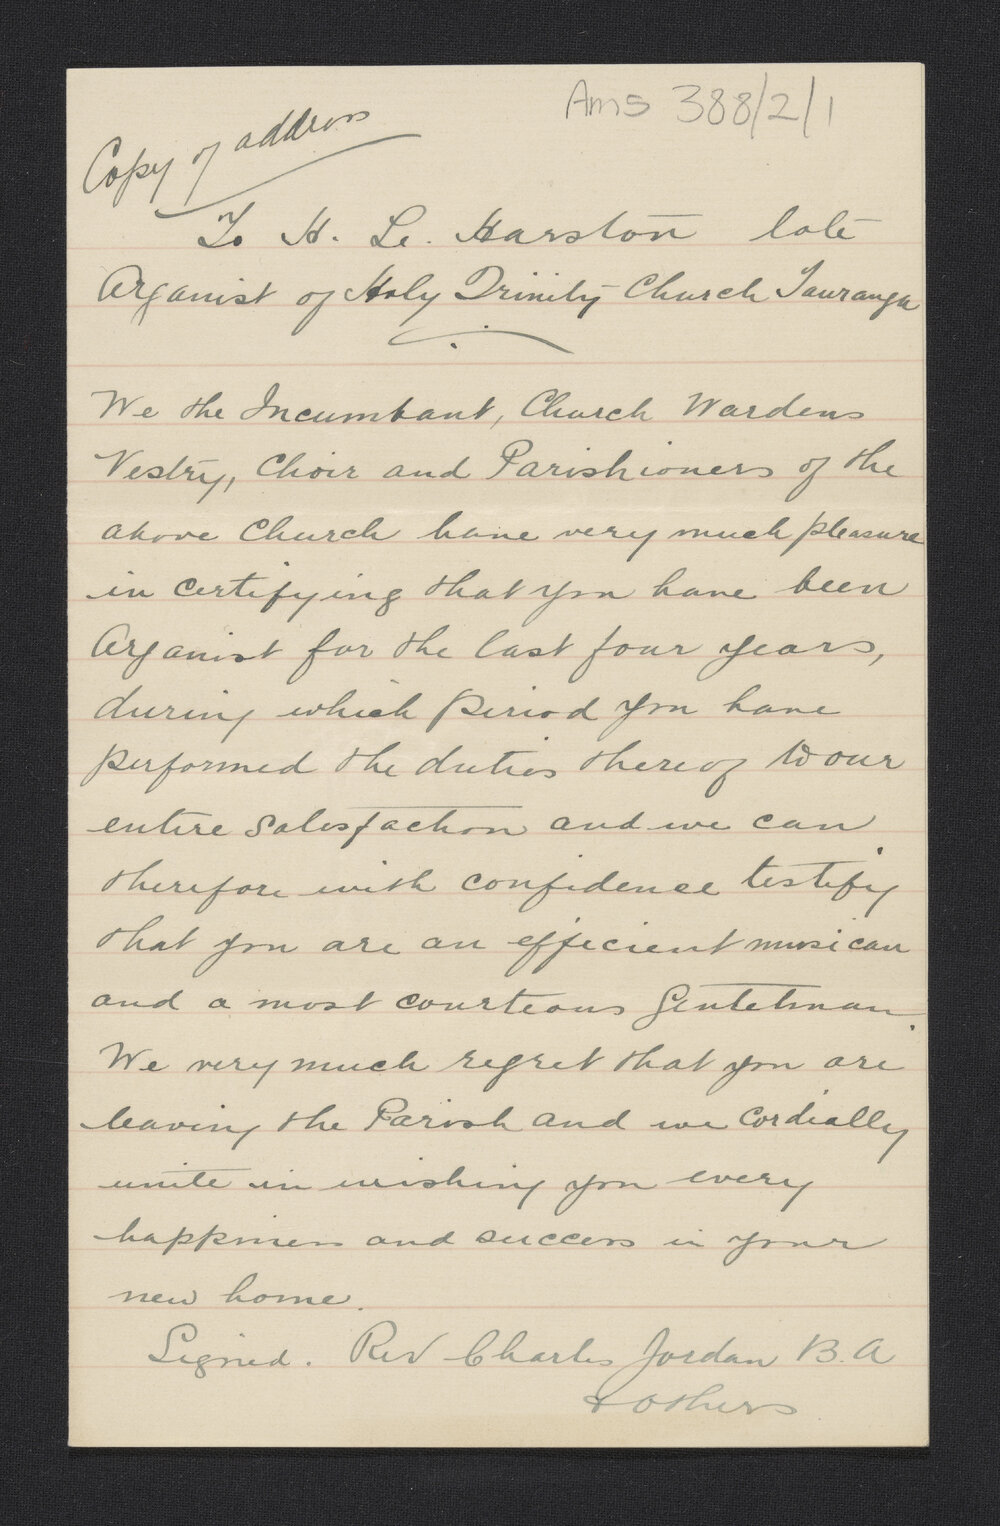 Ams 388/2/1
Copy of address
To H. Le. Harston late
Organist of Holy Trinity Church Tauranga
We the Incumbant, Church Wardens
Vestry, Choir and Parishioners of the
above Church have very much pleasure
in certifying that you have been
Organist for the last four years,
during which period you have
performed the duties thereof to our
entire satisfaction and we can
therefore with confidence testify
that you are an efficient musican
and a most courteous Gentleman.
We very much regret that you are
leaving the Parish and we cordially
unite in wishing you every
happiness and success in your
new home.
Signed. Rev Charles Jordan B.A
& others